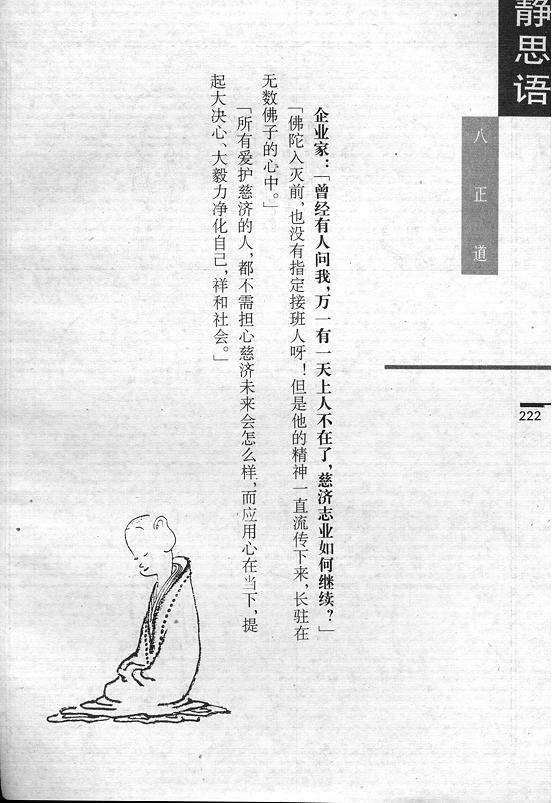 静思语
八正道
222
企业家：「曾经有人问我，万一有一天上人不在了，慈济志业如何继续？」
「佛陀入灭前，也没有指定接班人呀！但是他的精神一直流传下来，长驻在
无数佛子的心中。」
「所有爱护慈济的人，都不需担心慈济未来会怎么样，而应用心在当下，提
起大决心、大毅力净化自己，祥和社会。」